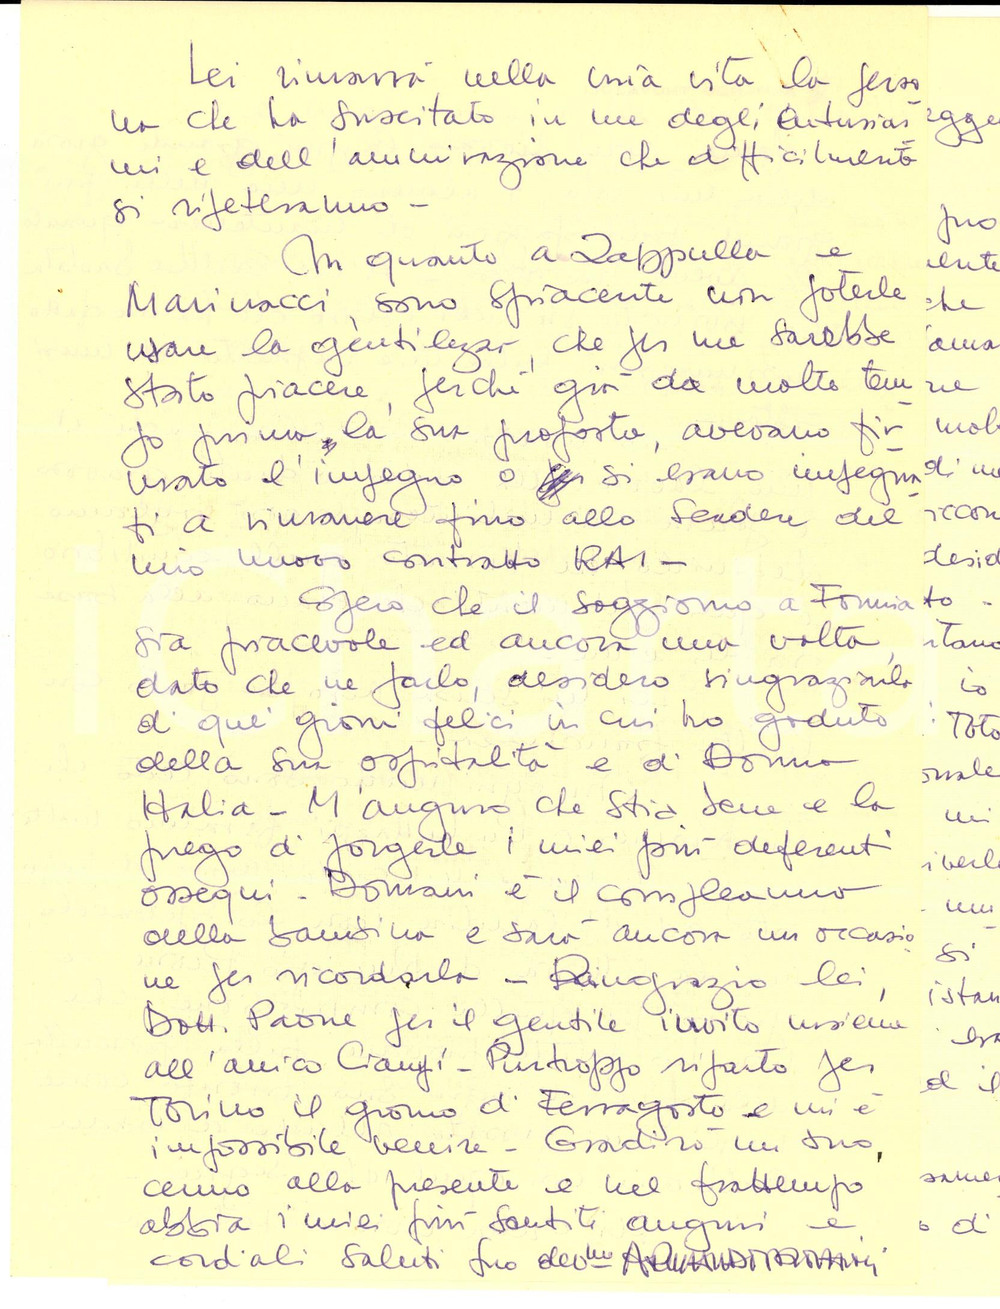 Lei rimarrà nella mia vita la perso
na che ha suscitato in me degli entusias
mi e dell'ammirazione che difficilmente
si ripeteranno -
In quanto a Zappulla e
Marinacci sono spiacente non poterle
usare la gentilezza, che per me sarebbe
stato piacere, perché già da molto tem
po prima, la sua proposta, avevano fir
mato l'impegno o si erano impegna
ti a rimanere fino allo scadere del
mio nuovo contratto RAI -
Spero che il soggiorno a Formia
sia piacevole ed ancora una volta,
dato che ne parlo, desidero ringraziarla
di quei giorni felici in cui ho goduto
della sua ospitalità e di Donna
Italia - M'auguro che stia bene e la
prego di porgerle i miei più deferenti
ossequi - Domani è il compleanno
della bambina e sarà ancora un occasio
ne per ricordarla - Ringrazio lei,
Dott. Paone per il gentile invito insieme
all'amico Ciangi - Purtroppo riparto per
Torino il giorno di Ferragosto e mi è
impossibile venire - Gradirò un suo,
cenno alla presente e nel frattempo
abbia i miei più sentiti auguri e
cordiali saluti suo dev.mo